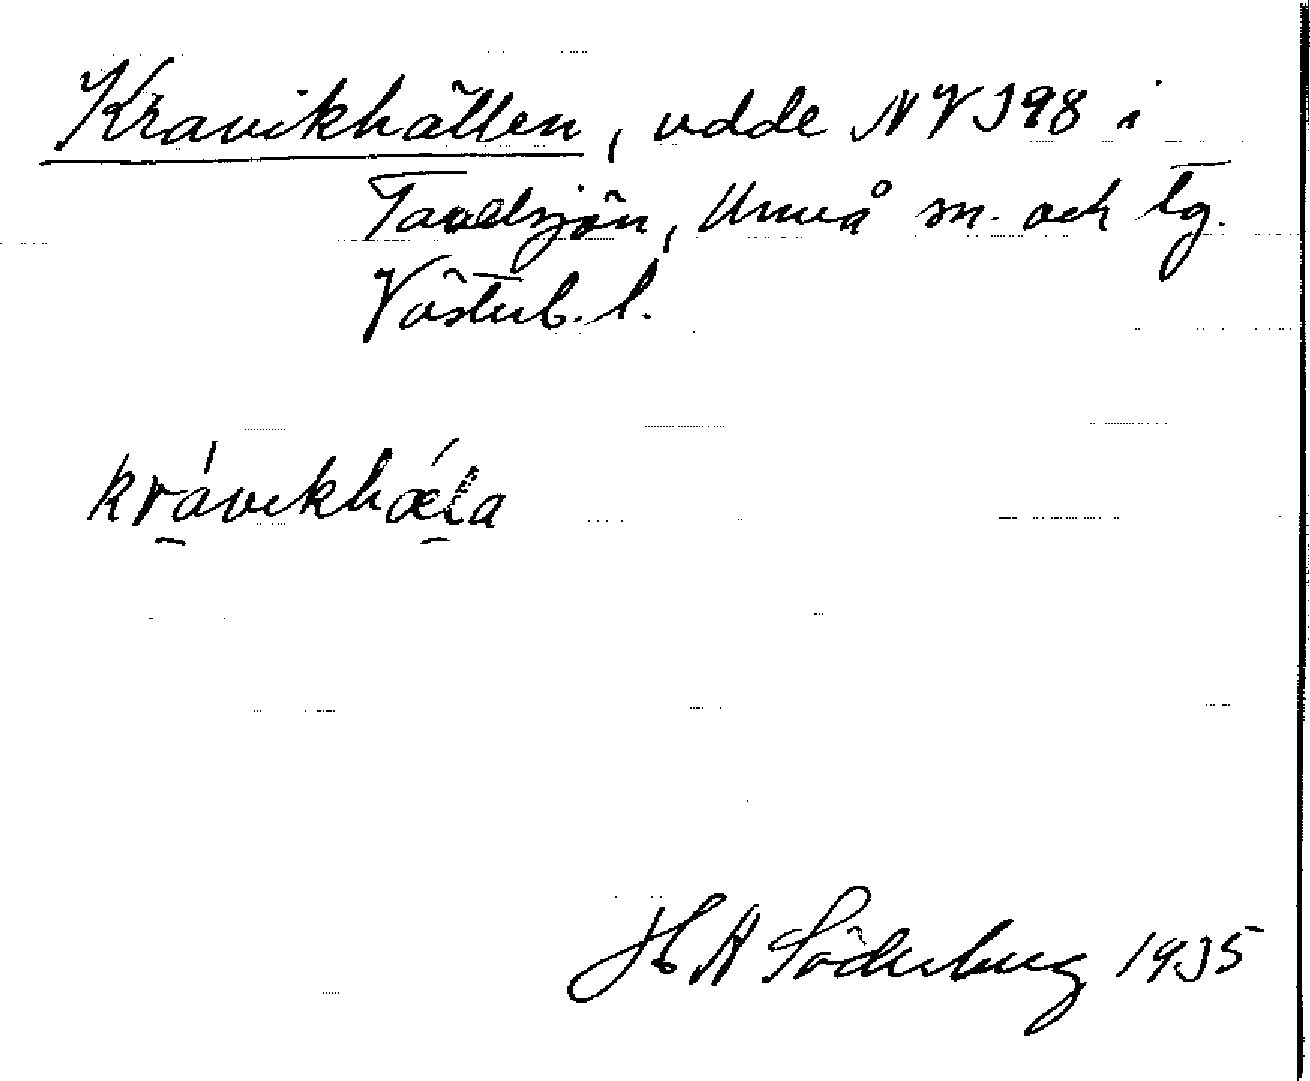 Kravikhällen, udde NV 398 i
Tavelsjön, Umeå sn. och tg.
Västerb. l.
krávikhǽla
H A Söderberg 1935